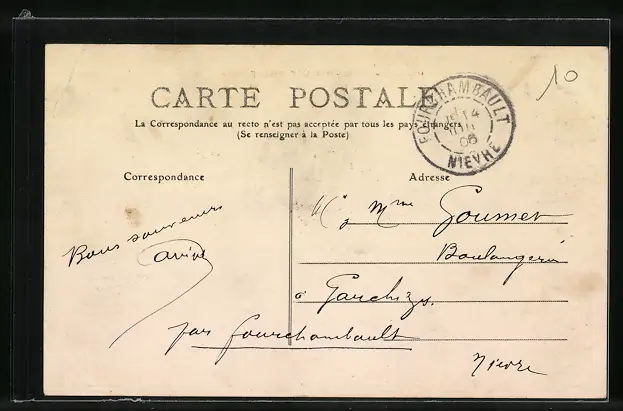 10
CARTE POSTALE
La Correspondance au recto n'est pas acceptée par tous les pays étrangers
(Se renseigner à la Poste)
FOURCHAMBAULT
14
06
NIEVRE
Correspondance
Adresse
Bons souvenirs
Mr & Mme Goumet
Boulangerie
à Garchizy
par Fourchambault
Nièvre